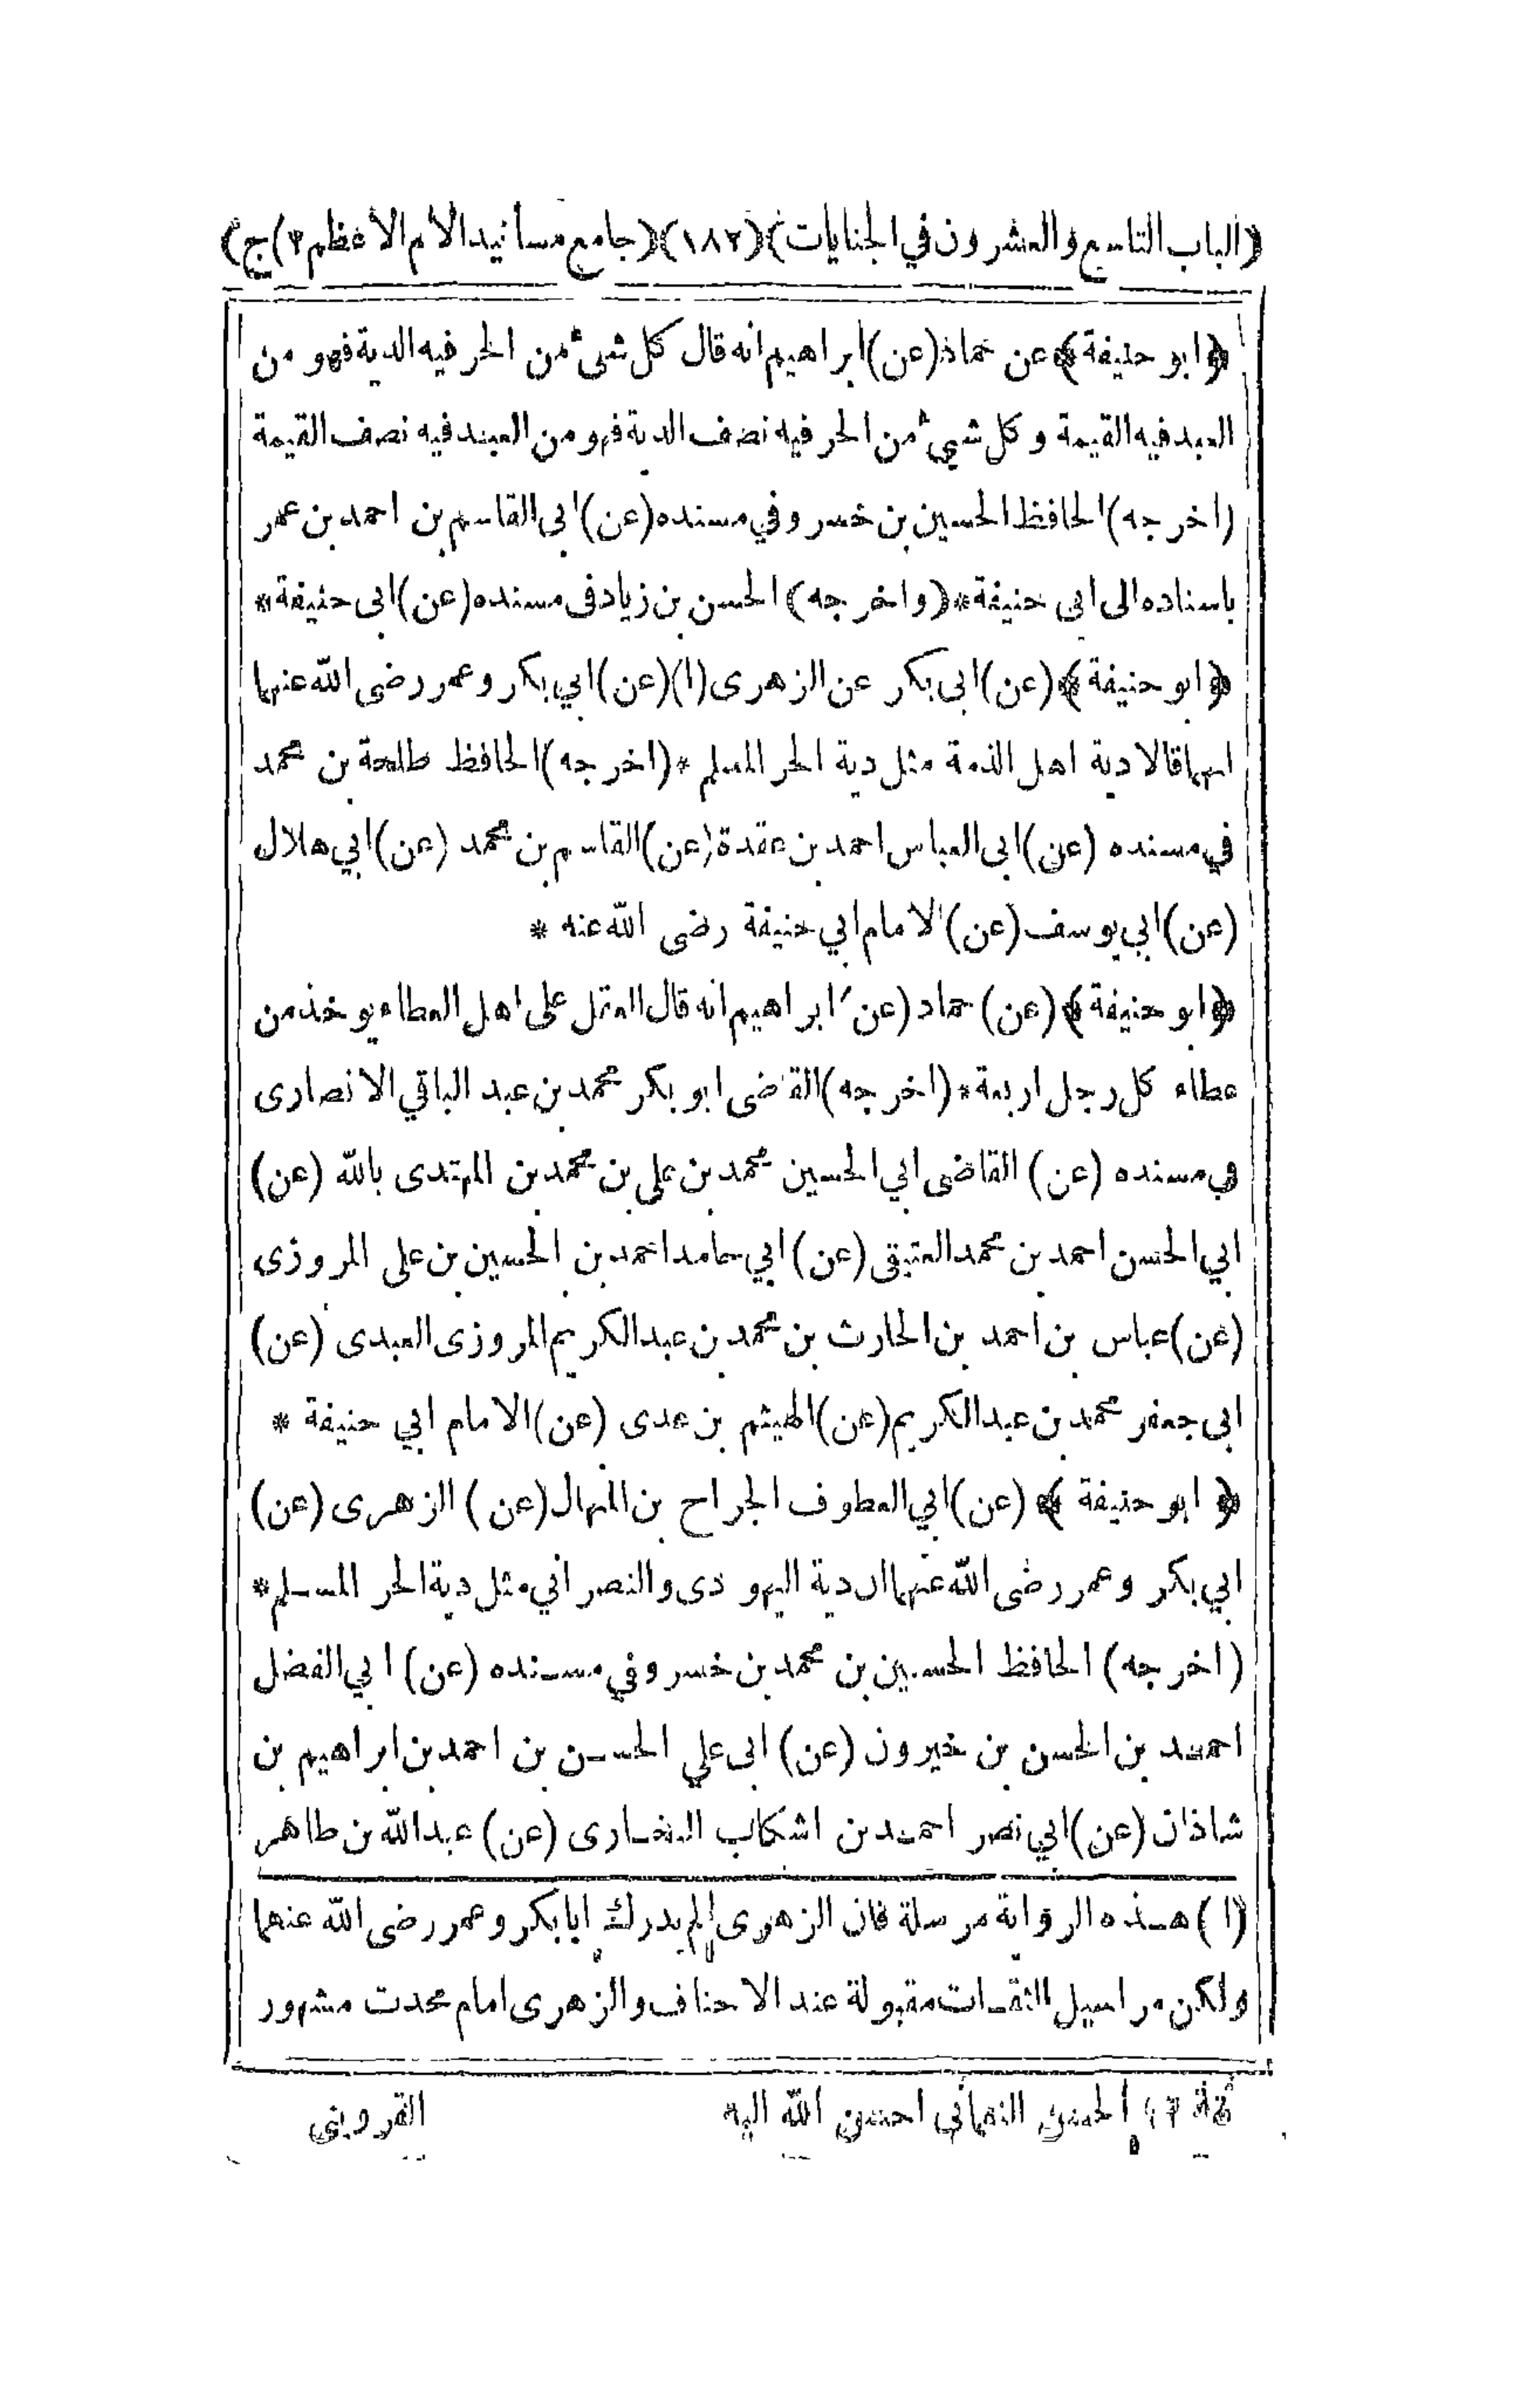 ﴿الباب التاسع والعشرون في الجنايات﴾ (١٨٢) (جامع مسانيد الامام الاعظم ٢) ج﴾
﴿ابو حنيفة﴾ عن حماد (عن) ابراهيم انه قال كل شئ من الحر فيه الدية فهو من
العبد فيه القيمة وكل شيئ من الحر فيه نصف الدية فهو من العبد فيه نصف القيمة
(اخرجه) الحافظ الحسين بن خسرو في مسنده (عن) ابى القاسم بن احمد بن عمر
باسناده الى ابى حنيفة * (واخرجه) الحسن بن زياد فى مسنده (عن) ابى حنيفة *
﴿ابو حنيفة﴾ (عن) ابى بكر عن الزهرى (١) (عن) ابي بكر وعمر رضى الله عنهما
انهما قالا دية اهل الذمة مثل دية الحر المسلم * (اخرجه) الحافظ طلحة بن محمد
في مسنده (عن) ابى العباس احمد بن عقدة (عن) القاسم بن محمد (عن) ابي هلال
(عن) ابي يوسف (عن) الامام ابي حنيفة رضى الله عنه *
﴿ابو حنيفة﴾ (عن) حماد (عن) ابراهيم انه قال العقل على اهل العطاء يوخذ من
عطاء كل رجل اربعة * (اخرجه) القاضى ابو بكر محمد بن عبد الباقي الانصارى
في مسنده (عن) القاضى ابي الحسين محمد بن على بن محمد بن المهتدى بالله (عن)
ابي الحسن احمد بن محمد العتيقى (عن) ابي حامد احمد بن الحسين بن على المروزى
(عن) عباس بن احمد بن الحارث بن محمد بن عبد الكريم المروزى العبدى (عن)
ابى جعفر محمد بن عبد الكريم (عن) الهيثم بن عدى (عن) الامام ابي حنيفة *
﴿ابو حنيفة﴾ (عن) ابي العطوف الجراح بن المنهال (عن) الزهرى (عن)
ابي بكر وعمر رضى الله عنهما ان دية اليهودى والنصراني مثل دية الحر المسلم *
(اخرجه) الحافظ الحسين بن محمد بن خسرو في مسنده (عن) ابي الفضل
احمد بن الحسن بن خيرون (عن) ابى علي الحسن بن احمد بن ابراهيم بن
شاذان (عن) ابي نصر احمد بن اشكاب البخارى (عن) عبد الله بن طاهر
(١) هذه الرواية مرسلة فان الزهرى لم يدرك ابا بكر وعمر رضى الله عنهما
ولكن مراسيل الثقات مقبولة عند الاحناف والزهرى امام محدث مشهور
ثقة ١٢ الحسن النعماني احسن الله اليه
القزوينى